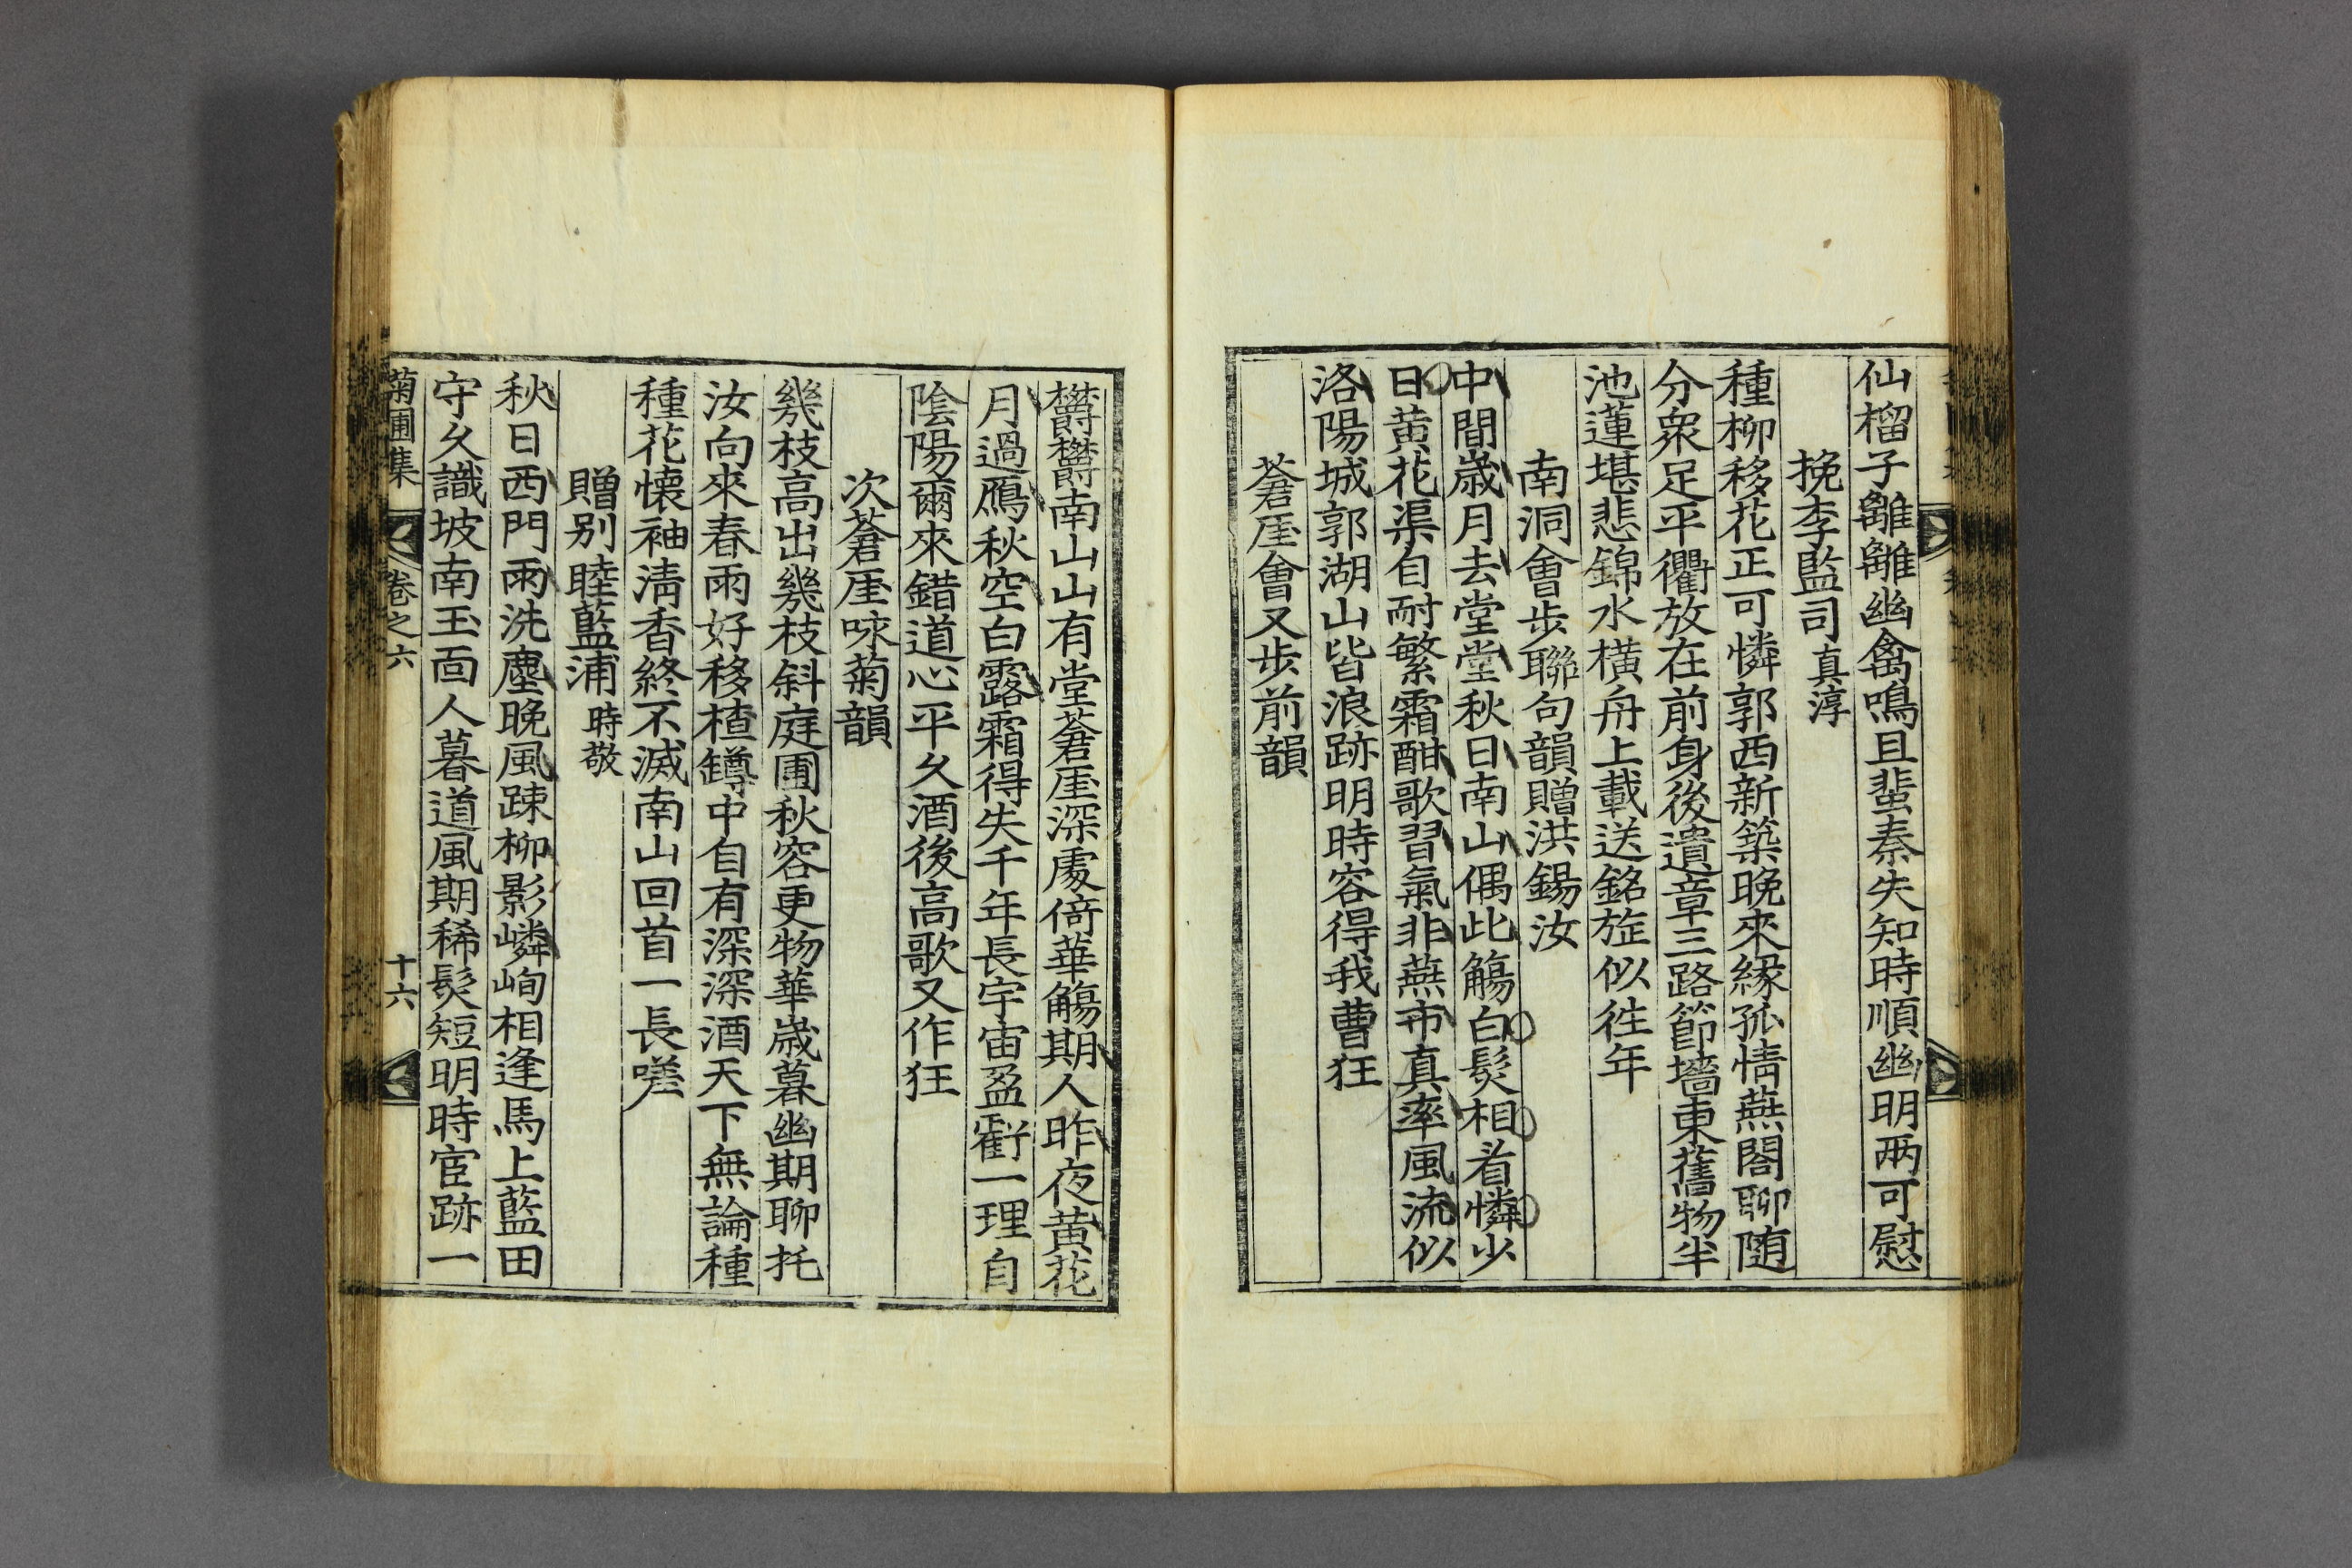 仙榴子離離幽禽鳴且蜚秦失知時順幽明兩可慰
挽李監司真淳
種柳移花正可憐郭西新築晩來緣孤情燕閣聊随
分衆足平衢放在前身後遺章三路節墻東舊物半
池蓮堪悲錦水橫舟上載送銘旌似徃年
南洞會步聯句韻贈洪錫汝
中間歲月去堂堂秋日南山偶此觴白髮相看憐少
日黄花渠自耐繁霜酣歌習氣非燕市真率風流似
洛陽城郭湖山皆浪跡明時容得我曹狂
蒼厓會又步前韻
欝欝南山山有堂蒼厓深處倚華觴期人昨夜黄花
月過鴈秋空白露霜得失千年長宇宙盈虧一理自
陰陽爾來錯道心平久酒後高歌又作狂
次蒼厓咏菊韻
幾枝高出幾枝斜庭圃秋容更物華歲暮幽期聊托
汝向來春雨好移楂罇中自有深深酒天下無論種
種花懷袖淸香終不滅南山回首一長嗟
贈别睦藍浦時敬
秋日西門雨洗塵晩風踈柳影嶙峋相逢馬上藍田
守久識坡南玉面人暮道風期稀髮短明時宦跡一
菊圃集 卷之六 十六